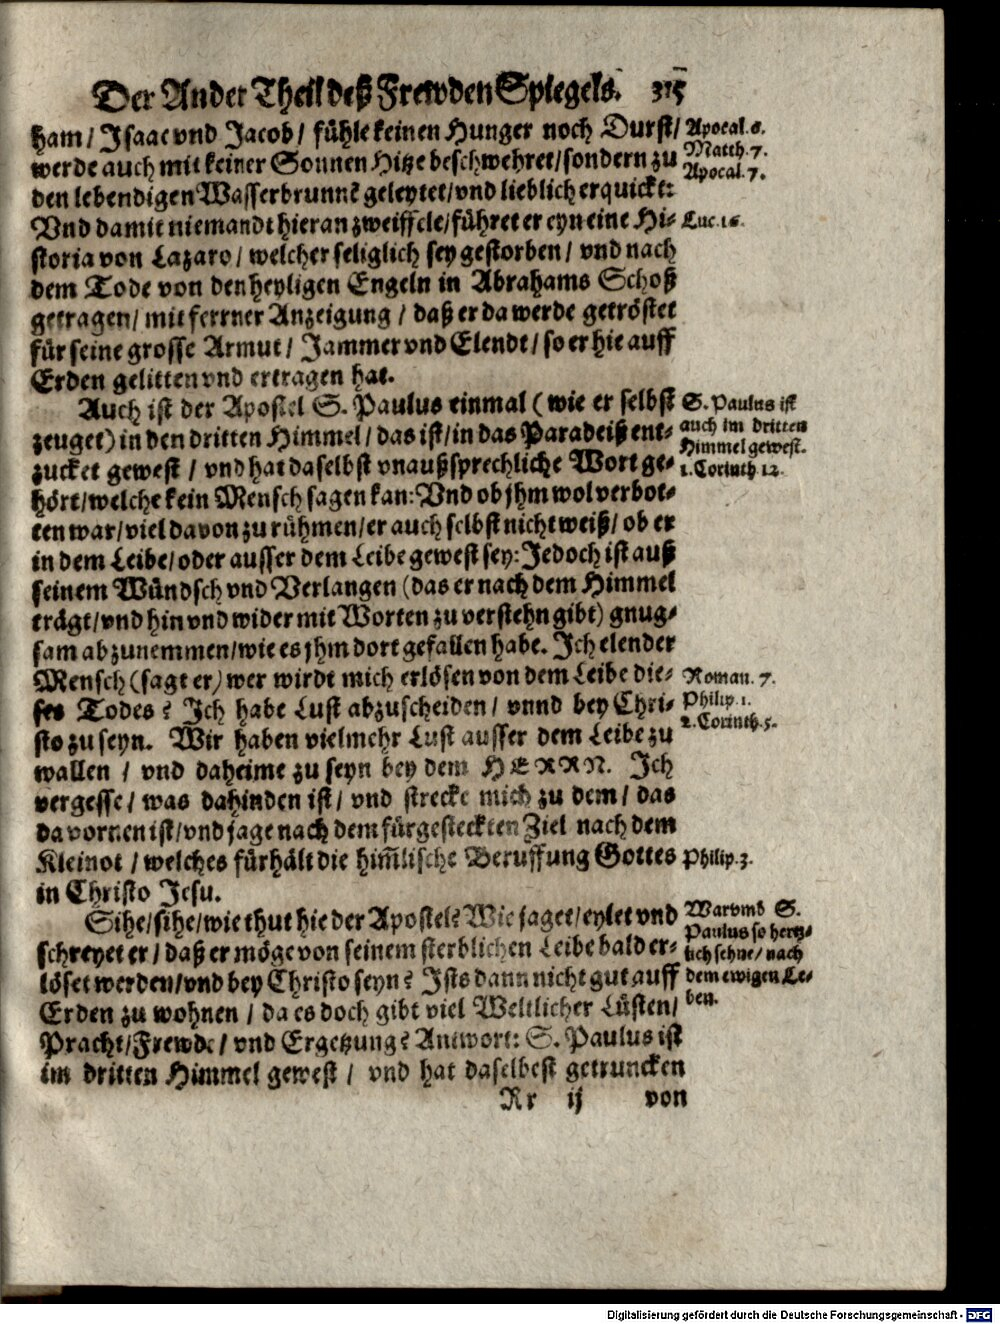 Der Ander Theil deß Frewden Spiegels. 315
ham/ Isaac vnd Jacob/ fühle keinen Hunger noch Durst/
Apocal. 6.
werde auch mit keiner Sonnen Hitze beschwehret/sondern zu
Matth. 7.
Apocal. 7.
den lebendigen Wasserbrunnē geleytet/vnd lieblich erquickt:
Vnd damit niemandt hieran zweiffele/führet er eyn eine Hi-
Luc. 16.
storia von Lazaro/ welcher seliglich sey gestorben/ vnd nach
dem Tode von den heyligen Engeln in Abrahams Schoß
getragen/ mit ferrner Anzeigung / daß er da werde getröstet
für seine grosse Armut/ Jammer vnd Elendt/ so er hie auff
Erden gelitten vnd ertragen hat.
Auch ist der Apostel S. Paulus einmal (wie er selbst
S. Paulus ist
zeuget) in den dritten Himmel/ das ist/in das Paradeiß ent-
auch im dritten
Himmel gewest.
zucket gewest / vnd hat daselbst vnaußsprechliche Wort ge-
1. Corinth 12.
hört/welche kein Mensch sagen kan: Vnd ob jhm wol verbot-
ten war/viel davon zu rühmen/er auch selbst nicht weiß/ ob er
in dem Leibe/oder ausser dem Leibe gewest sey: Jedoch ist auß
seinem Wündsch vnd Verlangen (das er nach dem Himmel
trägt/vnd hin vnd wider mit Worten zu verstehn gibt) gnug-
sam abzunemmen/wie es jhm dort gefallen habe. Ich elender
Mensch (sagt er) wer wirdt mich erlösen von dem Leibe die-
Roman. 7.
ses Todes? Ich habe Lust abzuscheiden/ vnnd bey Chri-
Philip. 1.
2. Corinth. 5.
sto zu seyn. Wir haben vielmehr Lust ausser dem Leibe zu
wallen / vnd daheime zu seyn bey dem HERRN. Ich
vergesse/ was dahinden ist/ vnd strecke mich zu dem/ das
da vornen ist/vnd jage nach dem fürgesteckten Ziel nach dem
Kleinot / welches fürhält die him̃lische Beruffung Gottes
Philip. 3.
in Christo Jesu.
Sihe/sihe/wie thut hie der Apostel? Wie jaget/eylet vnd
Warumb S.
schreyet er/ daß er möge von seinem sterblichen Leibe bald er-
Paulus so hertz-
lich sehne/ nach
löset werden/vnd bey Christo seyn? Ists dann nicht gut auff
dem ewigen Le-
Erden zu wohnen / da es doch gibt viel Weltlicher Lüsten/
ben.
Pracht/Frewde/ vnd Ergetzung? Antwort: S. Paulus ist
im dritten Himmel gewest / vnd hat daselbest getruncken
Rr ij von
Digitalisierung gefördert durch die Deutsche Forschungsgemeinschaft - DFG